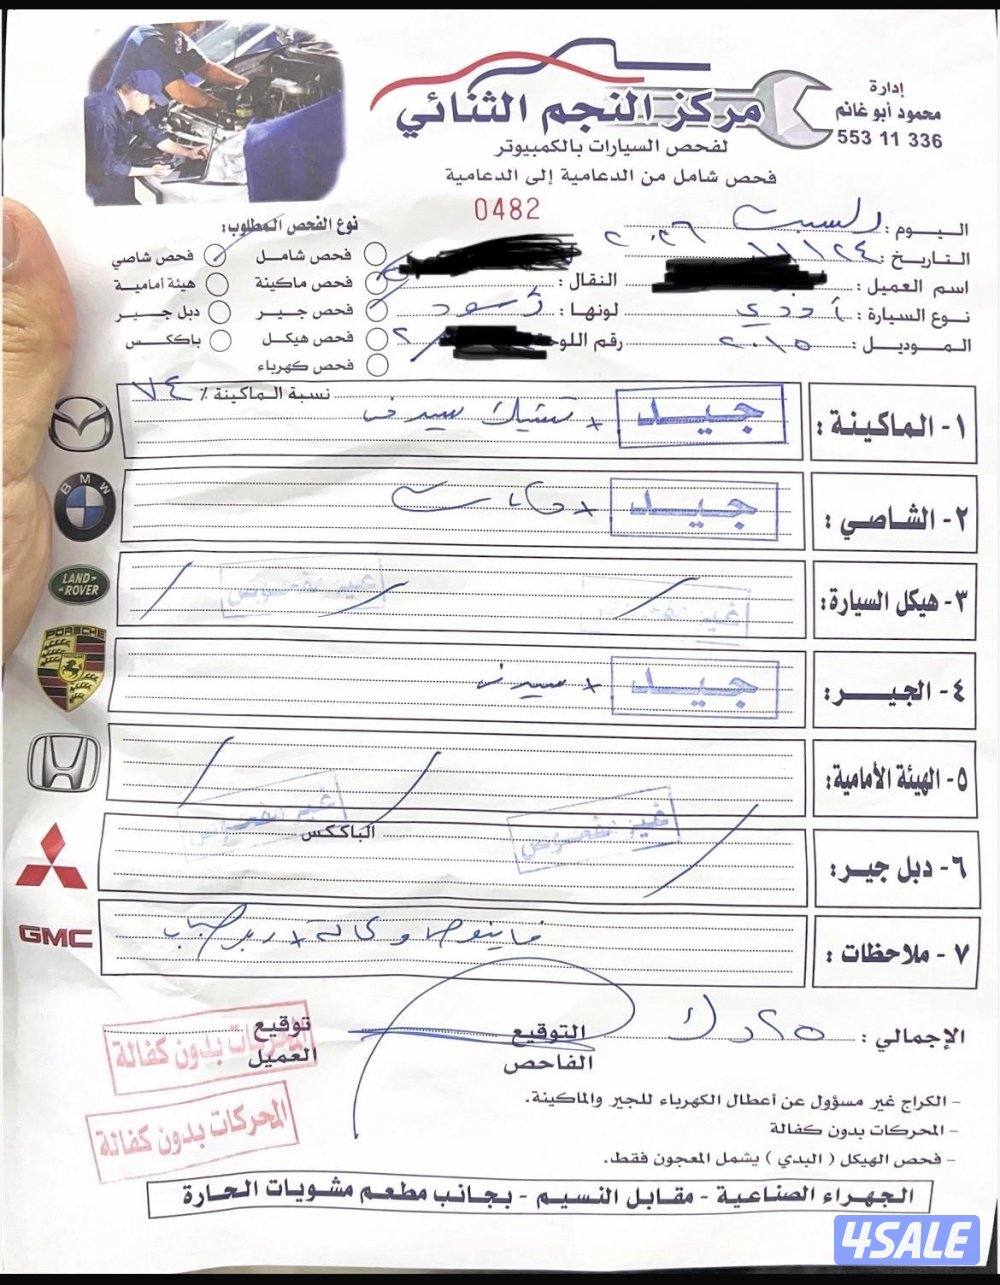 إدارة
محمود أبو غانم
553 11 336
مركز النجم الثنائي
لفحص السيارات بالكمبيوتر
فحص شامل من الدعامية إلى الدعامية
0482
اليوم : السبت
التاريخ :
اسم العميل :
نوع السيارة : أودي
الموديل : ٢٠١٥
النقال :
لونها : أسود
رقم اللوحة
نوع الفحص المطلوب:
فحص شامل
فحص ماكينة
فحص جير
فحص هيكل
فحص كهرباء
فحص شاصي
هيئة أمامية
دبل جير
باككس
١- الماكينة : جيد + تشيك سيرف
نسبة الماكينة ٪ ٧٤
٢- الشاصي : جيد +
٣- هيكل السيارة: غير مفحوص غير مفحوص
٤- الجير: جيد + سيرف
٥- الهيئة الأمامية: غير مفحوص
الباككس
٦- دبل جير: غير مفحوص
٧- ملاحظات :
MAZDA
BMW
LAND-ROVER
PORSCHE
GMC
الإجمالي : ٢٥ دك
التوقيع
الفاحص
توقيع
العميل
المحركات بدون كفالة
المحركات بدون كفالة
- الكراج غير مسؤول عن أعطال الكهرباء للجير والماكينة.
- المحركات بدون كفالة
- فحص الهيكل ( البدي ) يشمل المعجون فقط.
الجهراء الصناعية - مقابل النسيم - بجانب مطعم مشويات الحارة
4SALE